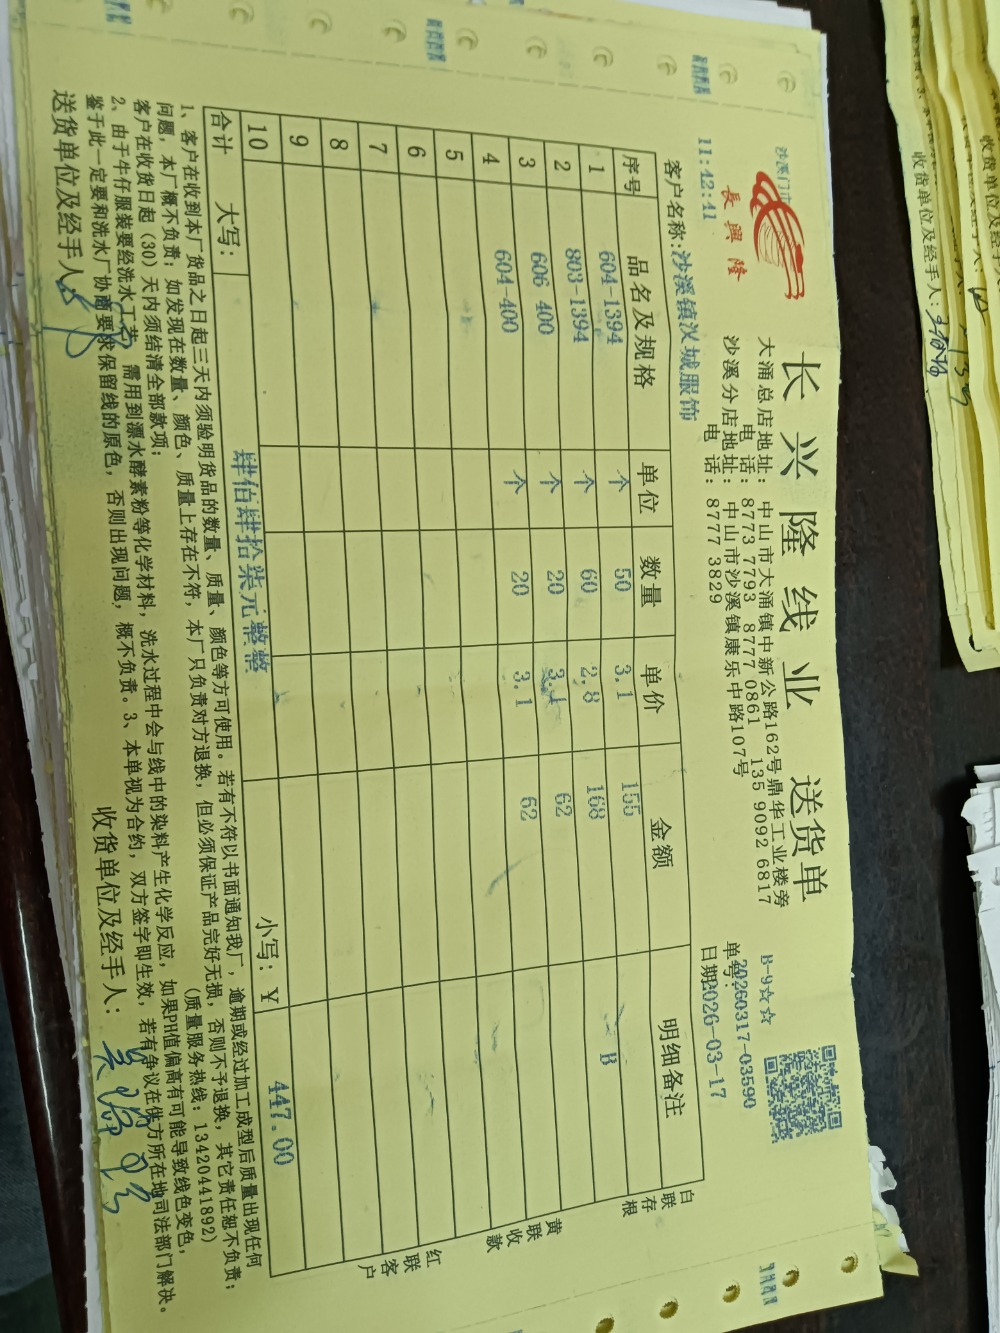 沙溪门市
長興隆
长兴隆线业 送货单
大涌总店地址：中山市大涌镇中新公路162号鼎华工业楼旁
电话：8773 7793 8777 0861 135 9092 6817
沙溪分店地址：中山市沙溪镇康乐中路107号
电话：8777 3829
B-9☆☆
单号：20260317-03590
11:42:41
日期2026-03-17
客户名称：沙溪镇汉城服饰
序号 品名及规格 单位 数量 单价 金额 明细备注
1 604-1394 个 50 3.1 155 B
2 803-1394 个 60 2.8 168
3 606 400 个 20 3.1 62
4 604-400 个 20 3.1 62
5
6
7
8
9
10
合计 大写： 肆佰肆拾柒元整整 小写：￥ 447.00
白联存根
黄联收款
红联客户
1、客户在收到本厂货品之日起三天内须验明货品的数量、质量、颜色等方可使用。若有不符以书面通知我厂，逾期或经过加工成型后质量出现任何
问题，本厂概不负责；如发现在数量、颜色、质量上存在不符，本厂只负责对方退换，但必须保证产品完好无损，否则不予退换，其它责任恕不负责；
客户在收货日起（30）天内须结清全部款项； （质量服务热线：13420441892）
2、由于牛仔服装要经洗水工艺，需用到漂水酵素粉等化学材料，洗水过程中会与线中的染料产生化学反应，如果PH值偏高有可能导致线色变色，
鉴于此一定要和洗水厂协商要求保留线的原色，否则出现问题，概不负责。3、本单视为合约，双方签字即生效，若有争议在供方所在地司法部门解决。
送货单位及经手人：
收货单位及经手人：
收货单位及经手人：